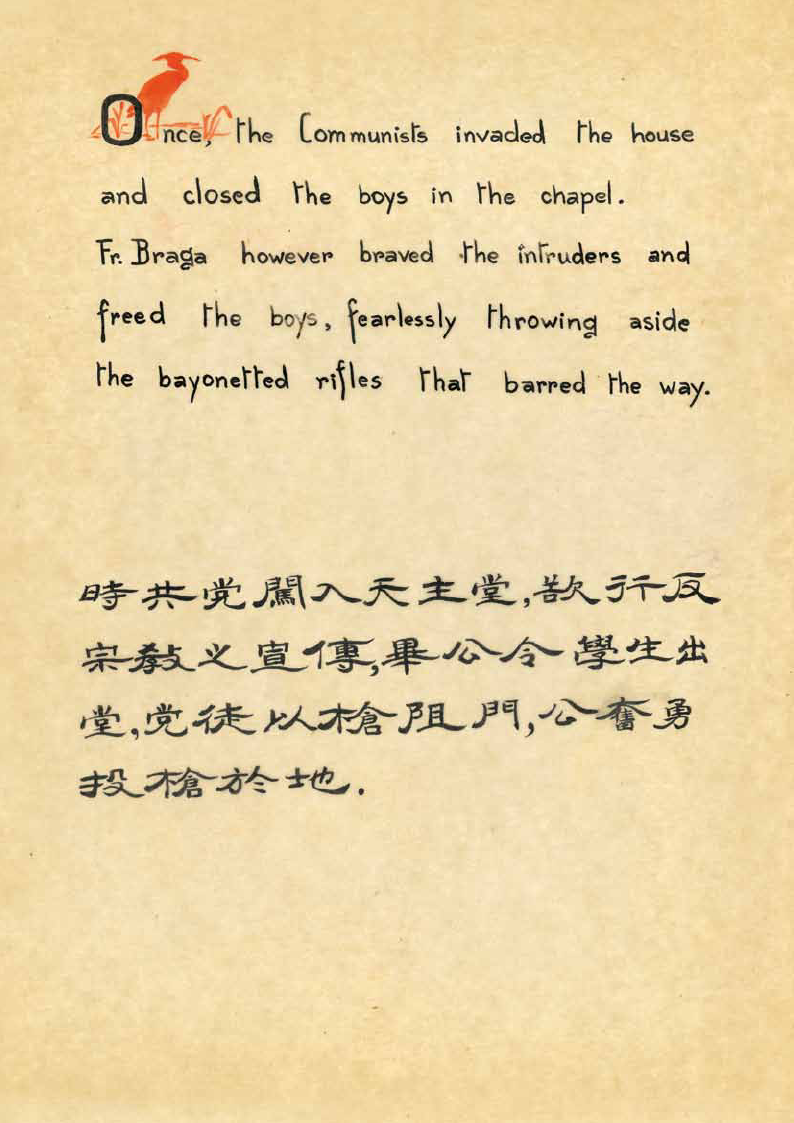 Once, the Communists invaded the house
and closed the boys in the chapel.
Fr. Braga however braved the intruders and
freed the boys, fearlessly throwing aside
the bayonetted rifles that barred the way.
時共党闖入天主堂,欲行反
宗教义宣傳,畢公令學生出
堂,党徒以槍阻門,公奮勇
投槍於地.